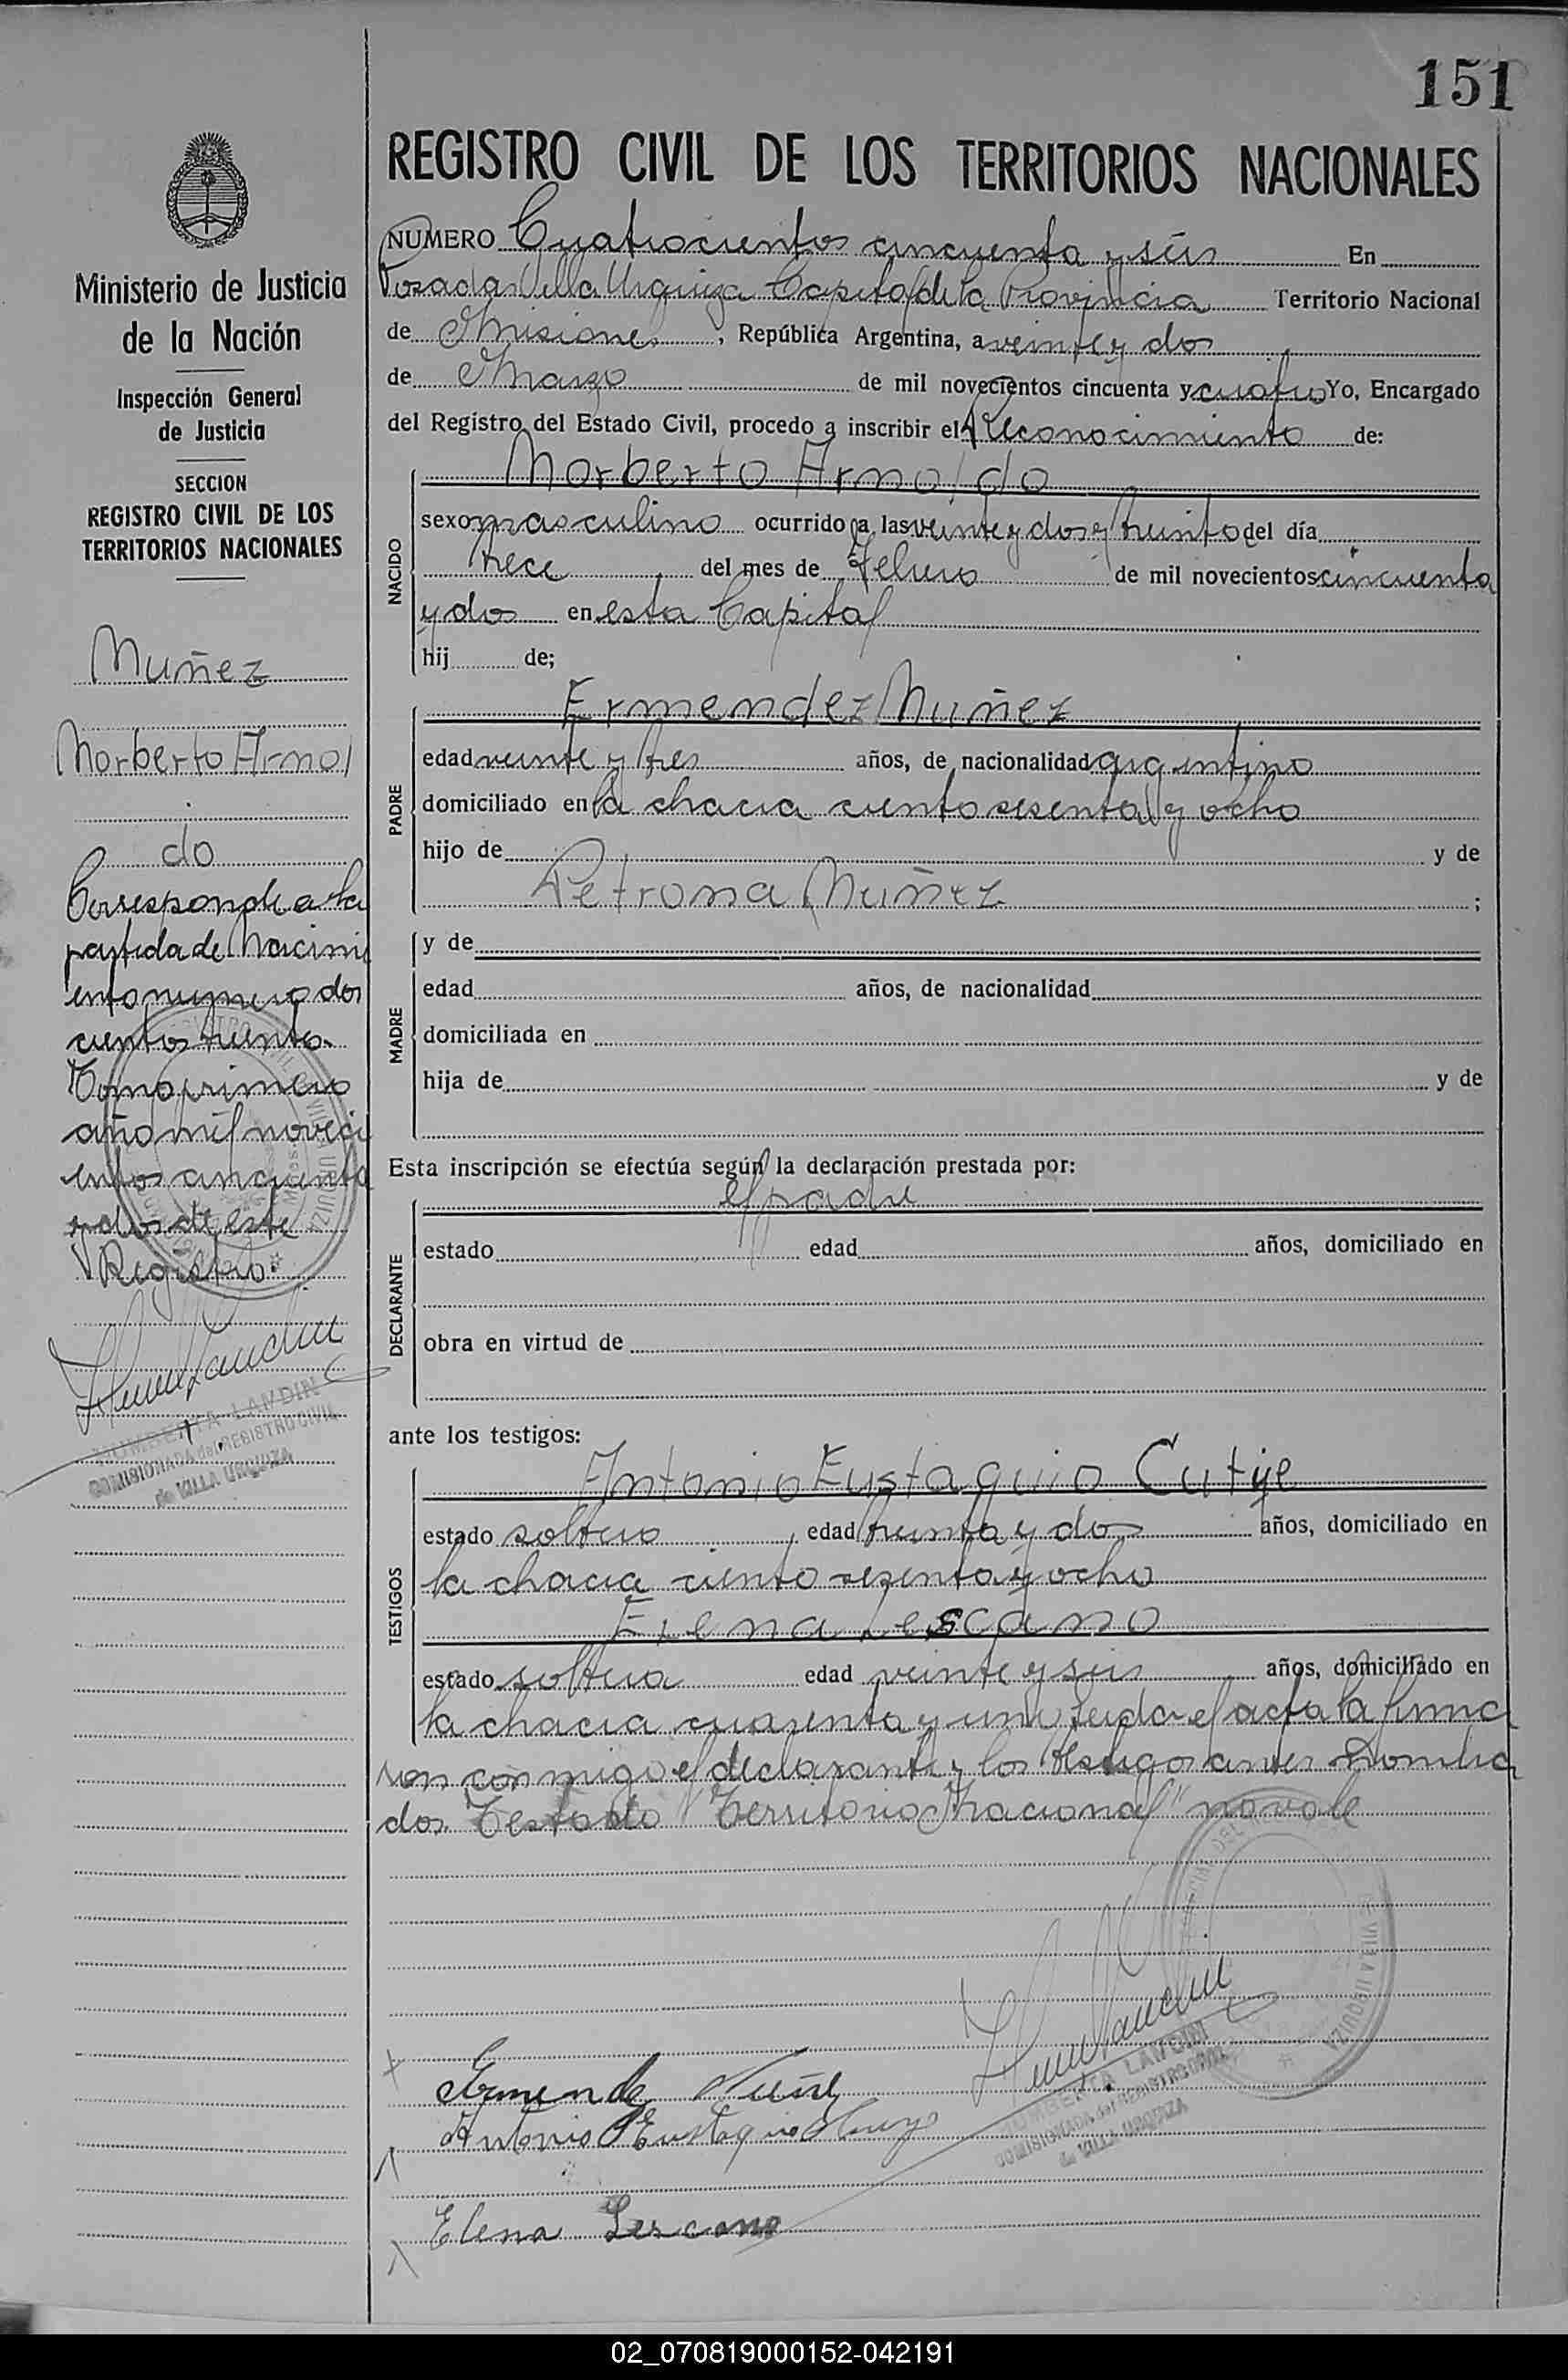 151
REGISTRO CIVIL DE LOS TERRITORIOS NACIONALES
Ministerio de Justicia
de la Nación
Inspección General
de Justicia
SECCION
REGISTRO CIVIL DE LOS
TERRITORIOS NACIONALES
Nuñez
Norberto Arnol
do
Corresponde a la
partida de Nacimi
ento numero dos
cientos treinta
Tomo primero
año mil noveci
entos cincuenta
y dos de este
Registro.
LANDIN
COMISIONADA del REGISTRO CIVIL
de VILLA URQUIZA
NUMERO Cuatrocientos cincuenta y séis En
Posadas Villa Urquiza Capital de la Provincia Territorio Nacional
de Misiones, República Argentina, a veinte y dos
de Marzo de mil novecientos cincuenta y cuatro Yo, Encargado
del Registro del Estado Civil, procedo a inscribir el Reconocimiento de:
Norberto Arnoldo
NACIDO
sexo masculino ocurrido a las veinte y dos y treinta del día
trece del mes de Febrero de mil novecientos cincuenta
y dos en esta Capital
hij de;
Ermendez Nuñez
PADRE
edad veinte y tres años, de nacionalidad argentino
domiciliado en la chacra ciento sesenta y ocho
hijo de y de
Petrona Nuñez ;
MADRE
y de
edad años, de nacionalidad
domiciliada en
hija de y de
Esta inscripción se efectúa según la declaración prestada por:
el padre
DECLARANTE
estado edad años, domiciliado en
obra en virtud de
ante los testigos:
Antonio Eustaquio
TESTIGOS
estado soltero, edad treinta y dos años, domiciliado en
la chacra ciento sesenta y ocho
Elena Lescano
estado soltera edad veinte y seis años, domiciliado en
la chacra cuarenta y uno, leida el acta la firma
ron conmigo el declarante y los testigos antes nombra
dos. Testado "Territorio Nacional" no vale
VILLA URQUIZA
LANDIN
COMISIONADA del REGISTRO CIVIL
de VILLA URQUIZA
Ermende Nuñez
Antonio Eustaquio
Elena Lescano
02_070819000152-042191